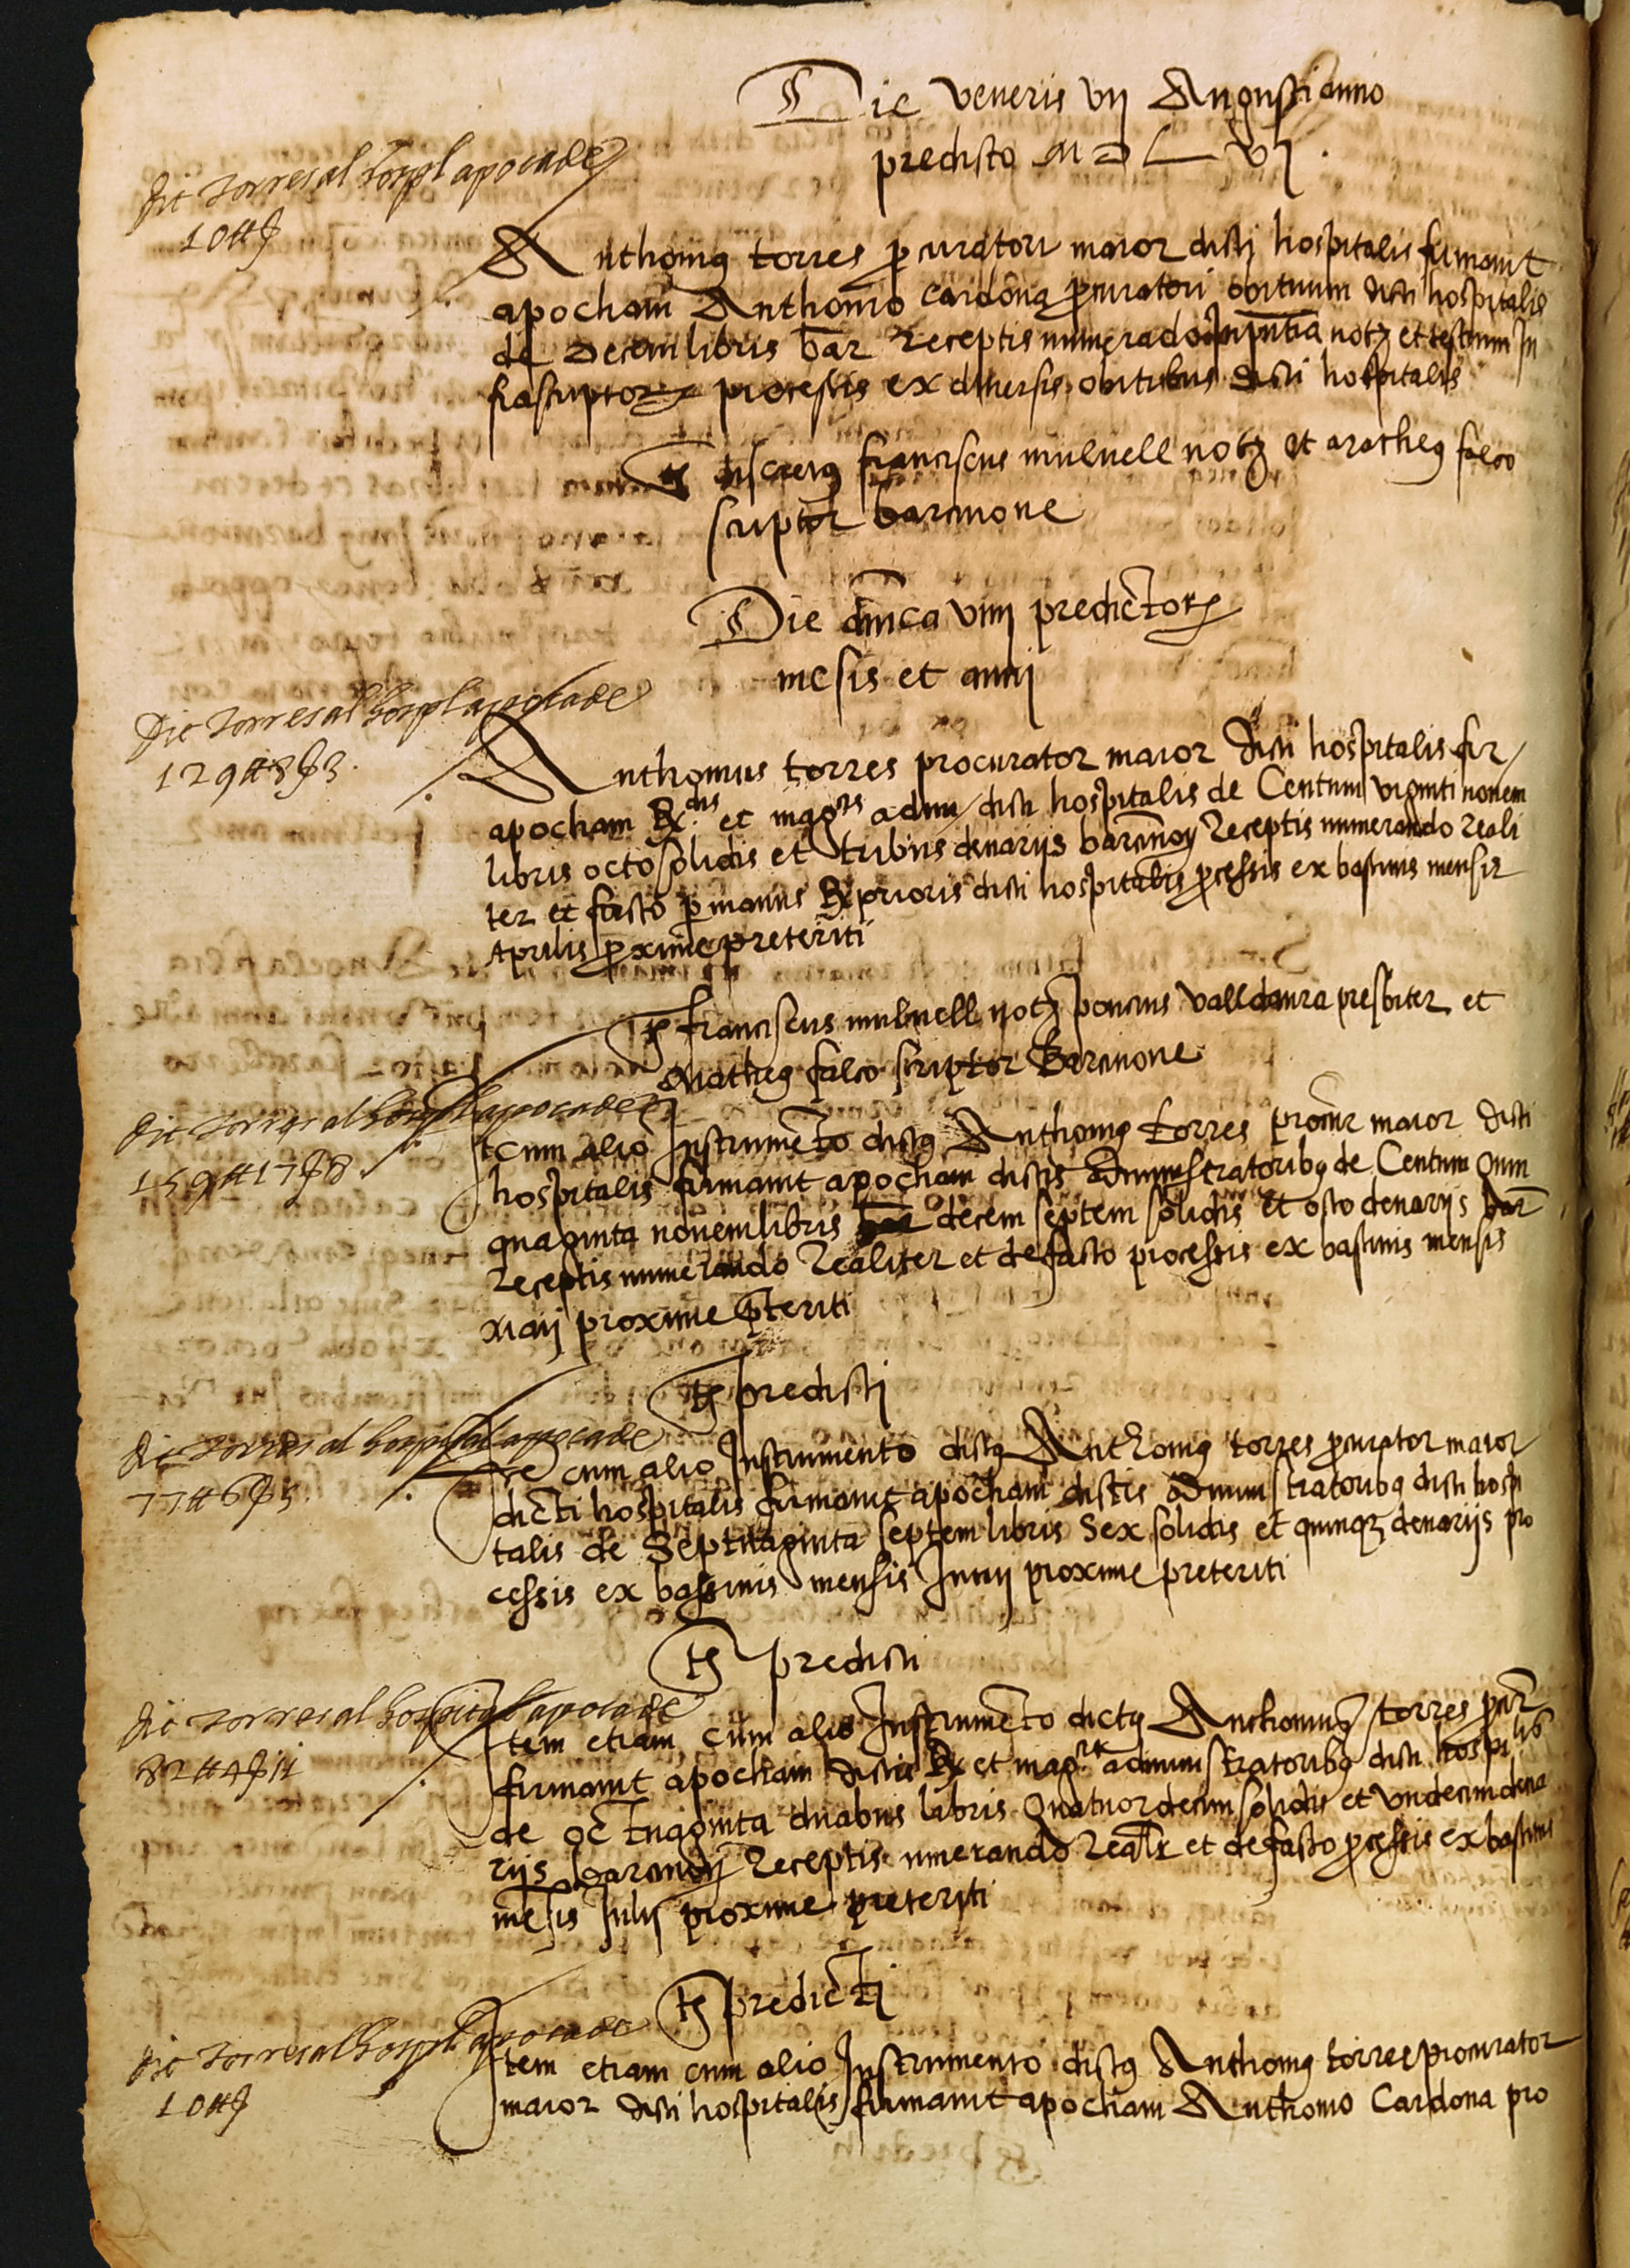 Die veneris vij Augusti anno
predicto M D L Vj.
Dit torres al hospl apoca de
10 ℔ ſ
Anthonius torres procuratori maior dicti hospitalis firmavit
apocham Anthonio cardona procuratori obituum dicti hospitalis
de decem libris bar receptis numerado In pntia notz et testium In
frascriptorz processis ex diversis obitibus dicti hospitalis
ts discretus franciscus mulnell notz et matheus falco
scriptor barcinone
Die dnica viiij predictorz
mesis et anni
Dit torres al hospl apoca de
129 ℔ 8 ſ 3.
Anthonius torres procurator maior dicti hospitalis fir
apocham Rx.dis et magcis adm dicti hospitalis de Centum viginti novem
libris octo solidis et tribus denarijs barcinon receptis numerando reali
ter et facto per manus Rx prioris dicti hospitalis processis ex bastinis mensis
Aprilis proxime preteriti
ts franciscus mulnell notz poncius valldaura presbiter et
Matheus falco scriptor Barcinone
Dit torres al hospl apoca de
159 ℔ 17 ſ 8
Item cum alio Instrumento dictus Anthonius torres procur maior dicti
hospitalis firmavit apocham dictis administratoribus de Centum quin
quaginta novem libris decem septem solidis et octo denarijs bar
receptis numerando realiter et de facto processis ex bastinis mensis
maij proxime preteriti
ts predicti
Dit torres al hospital apoca de
77 ℔ 6 ſ 5.
Ite cum alio Instrumento dictus Anthonius torres procurator maior
dicti hospitalis firmavit apocham dictis administratoribus dicti hospi
talis de Septuaginta septem libris Sex solidis et quinqz denarijs pro
cessis ex bassinis mensis Junij proxime preteriti
ts predicti
Dit torres al hospital apoca de
82 ℔ 14 ſ 11
Item etiam cum alio Instrumento dictus Anthonius torres pcur
firmavit apocham dictis Rx et mag.cis administratoribus dicti hospilis
de octuaginta duabus libris quatuordecim solidis et undecim dena
rijs barcinon receptis numerando realr et de facto processis ex bastinis
mesis Julij proxime preteriti
ts predicti
Dit torres al hospl apoca de
10 ℔ ſ
Item etiam cum alio Instrumento dictus Anthonius torres procurator
maior dicti hospitalis firmavit apocham Anthonio Cardona pro